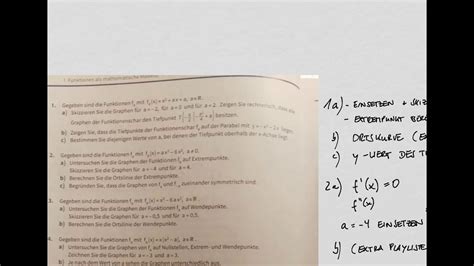 1. Gegeben sind die Funktionen fₐ mit fₐ(x) = x² + ax + a, a∈ℝ.
a) Skizzieren Sie die Graphen für a = –2, für a = 0 und für a = 2. Zeigen Sie rechnerisch, dass alle
Graphen der Funktionen den Tiefpunkt besitzen.
b) Zeigen Sie, dass die Tiefpunkte der Funktionenschar fₐ auf der Parabel mit y = –x² – 2x liegen.
c) Bestimmen Sie diejenigen Werte von a, bei denen der Tiefpunkt oberhalb der x-Achse liegt.
2. Gegeben sind die Funktionen fₐ mit
a) Untersuchen Sie die Graphen der Funktionen fₐ auf Extrempunkte.
Skizzieren Sie die Graphen für
b) Berechnen Sie die Ortslinie der Extrempunkte.
c) Begründen Sie, dass die Graphen von fₐ und zueinander symmetrisch sind.
3. Gegeben sind die Funktionen fₐ mit
a) Untersuchen Sie die Graphen der Funktionen fₐ auf Extrem- und Wendepunkte.
Skizzieren Sie die Graphen für a = –0,5 und für a = 0,5.
b) Berechnen Sie die Ortslinie der Wendepunkte.
4. Gegeben sind die Funktionen fₐ mit
a) Untersuchen Sie die Graphen von fₐ auf Nullstellen, Extrem- und Wendepunkte.
Zeichnen Sie die Graphen für a = –3 und a = 3.
b) Je nach dem Wert von a sehen die Graphen unterschiedlich aus.
1a) - EINSETZEN + SKIZ
- EXTREMPUNKT
b) ORTSKURVE
c) y-WERT DES T
2a) f'(x) = 0
f''(x)
a = -4 EINSETZEN
b) (EXTRA PLAYLISTE